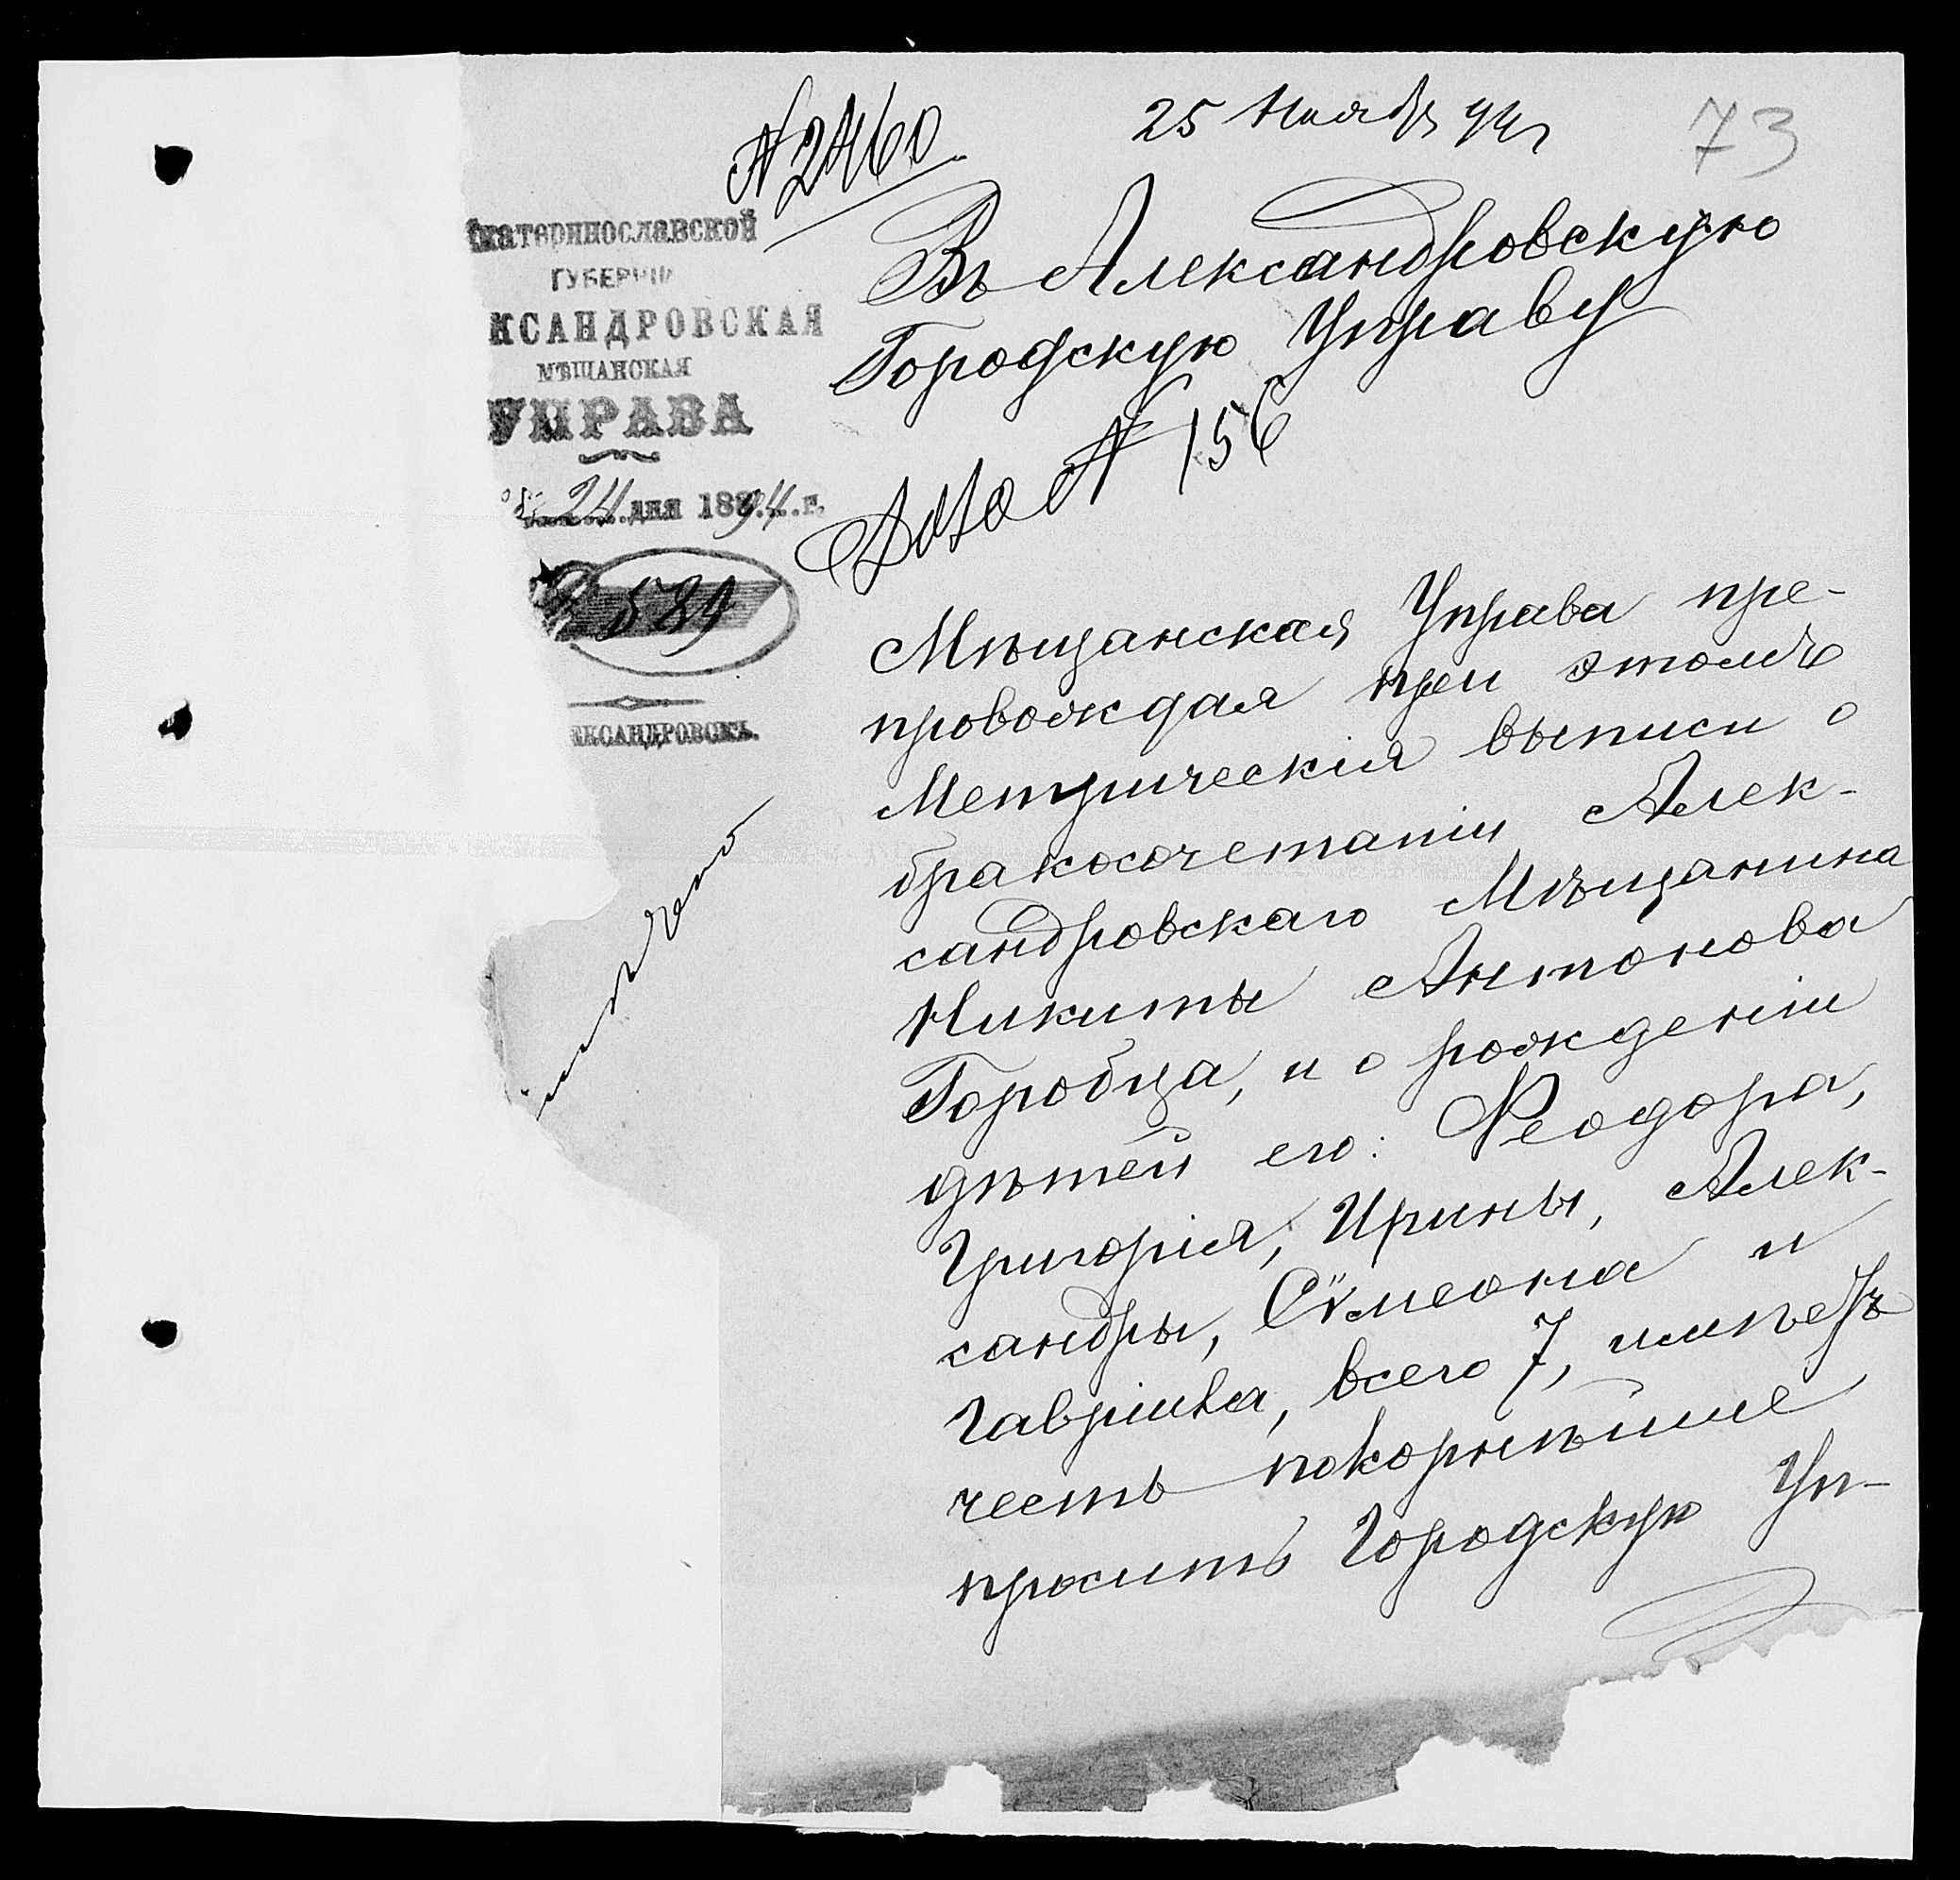 № 2460
25 Ноября 94 г
73
Екатеринославской
ГУБЕРНІИ
КСАНДРОВСКАЯ
МѢЩАНСКАЯ
УПРАВА
24 дня 1894 г.
589
ЕКСАНДРОВСКЪ.
Въ Александровскую
Городскую Управу
Дѣло № 156
Мѣщанская Управа пре-
провождая при этомъ
Метрическія выписи о
бракосочетаніи Алек-
сандровскаго Мѣщанина
Никиты Антонова
Горобца, и о рожденіи
дѣтей его: Ѳеодора,
Григорія, Ирины, Алек-
сандры, Сѵмеона и
Гавріила, всего 7, имѣетъ
честь покорнѣйше
просить Городскую Уп-